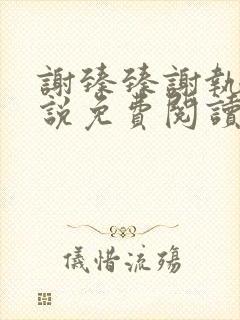 謝臻臻謝執
說免費閱讀
儀惜流殤